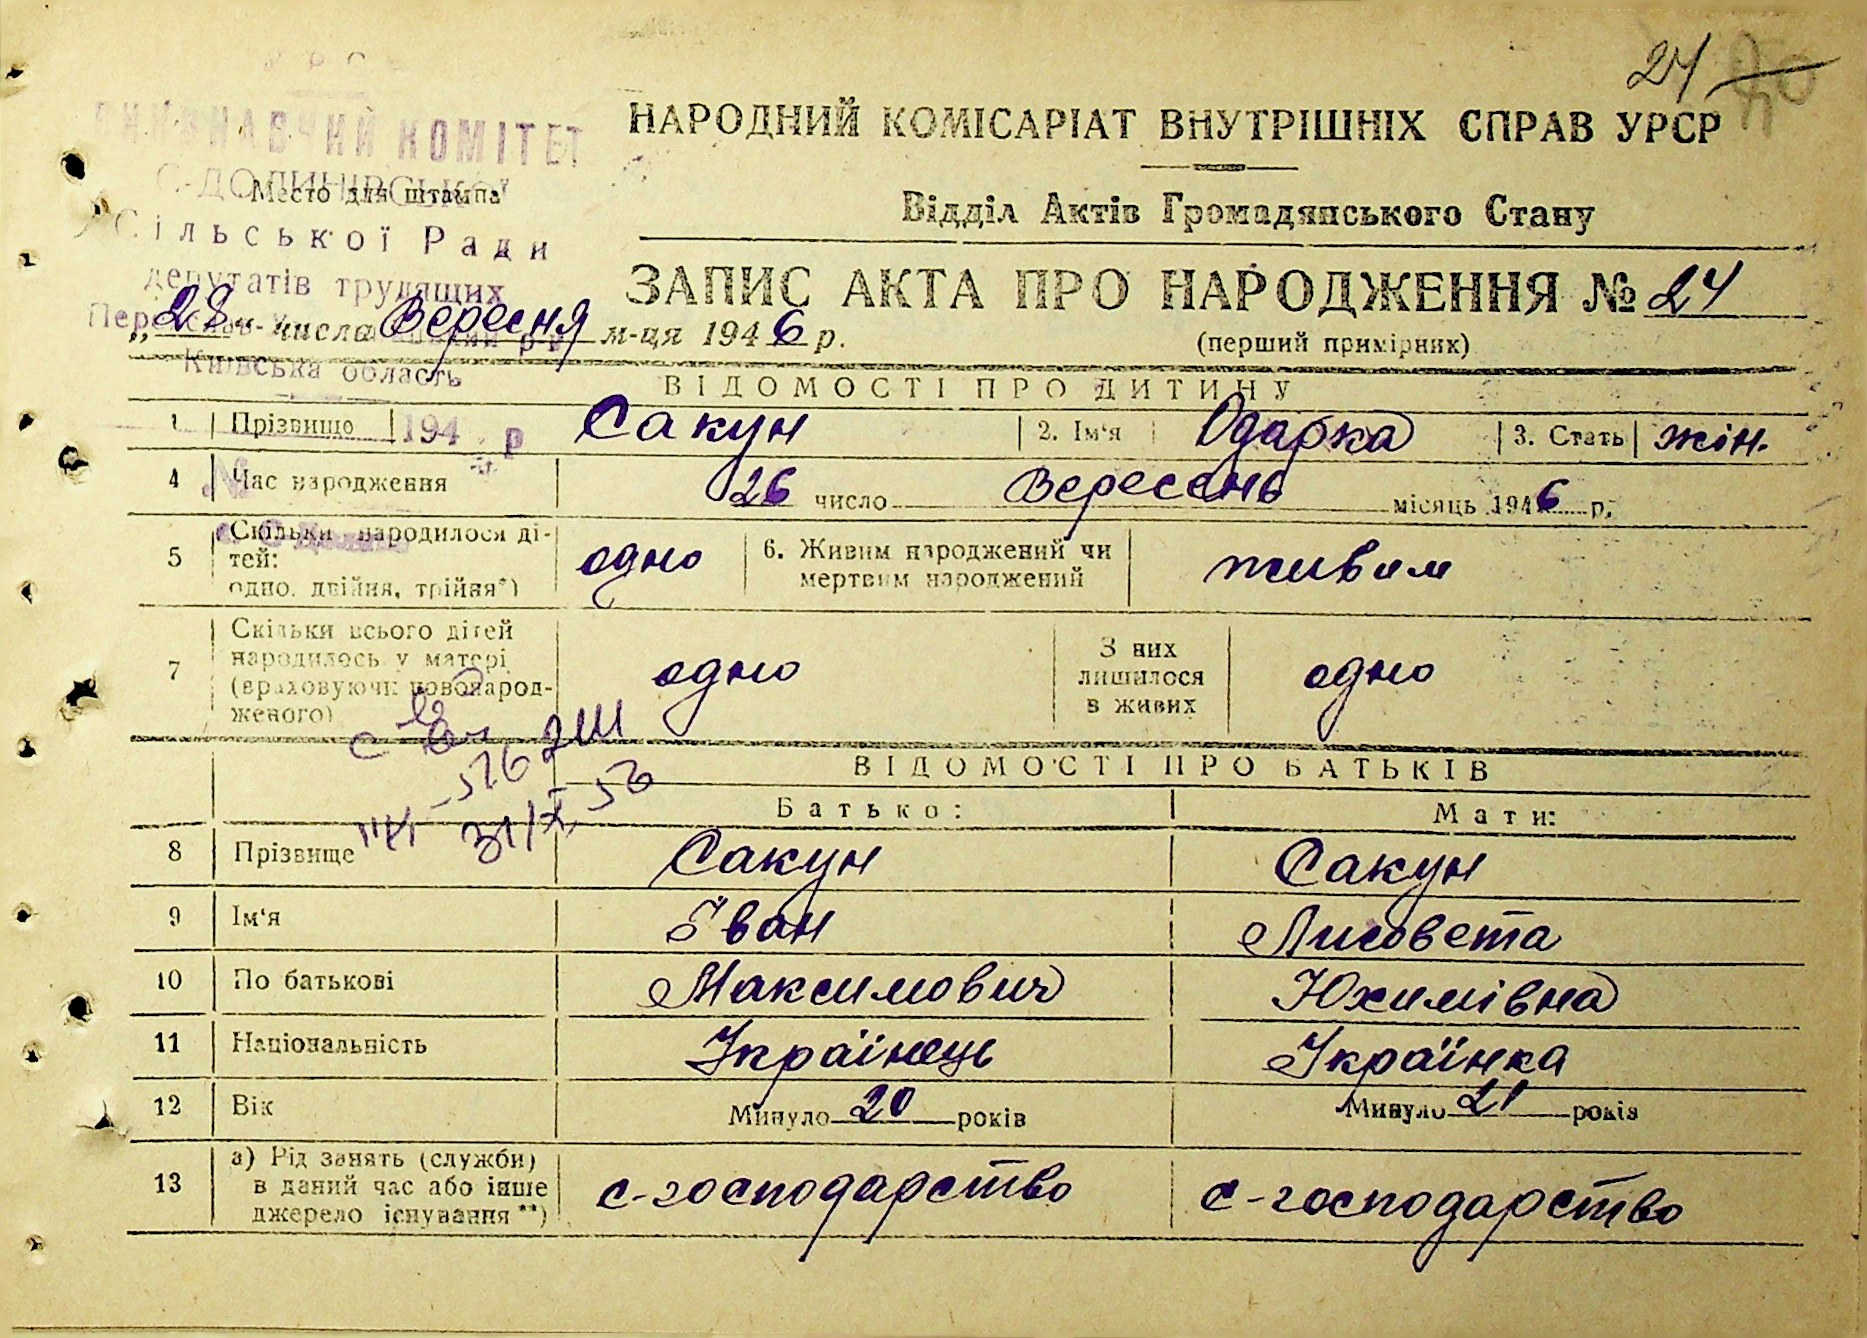 24
НАРОДНИЙ КОМІСАРІАТ ВНУТРІШНІХ СПРАВ УРСР
ВИКОНАВЧИЙ КОМІТЕТ
Место для штампа
Відділ Актів Громадянського Стану
Сільської Ради
депутатів трудящих
ЗАПИС АКТА ПРО НАРОДЖЕННЯ № 24
(перший примірник)
„28" числа Вересня м-ця 1946 р.
Київська область
ВІДОМОСТІ ПРО ДИТИНУ
1 Прізвище 194 р Сакун 2. Ім'я Одарка 3. Стать жін.
4 Час народження 26 число Вересень місяць 1946 р.
5 Скільки народилося ді-
тей:
одно, двійня, трійня*) одно 6. Живим народжений чи
мертвим народжений живим
7 Скільки всього дітей
народилось у матері
(враховуючи новонарод-
женого) одно З них
лишилося
в живих одно
ВІДОМОСТІ ПРО БАТЬКІВ
Батько: Мати:
8 Прізвище Сакун Сакун
9 Ім'я Іван Лисовета
10 По батькові Максимович Юхимівна
11 Національність Українець Українка
12 Вік Минуло 20 років Минуло 21 років
13 а) Рід занять (служби)
в даний час або інше
джерело існування**) с-господарство с-господарство